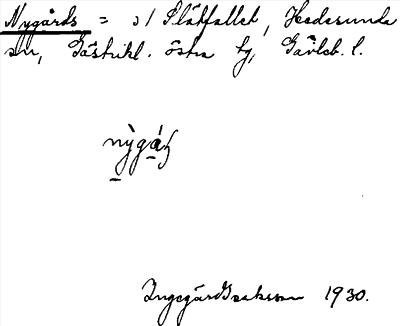 Nygårds = s/ Slåtfallet, Hedesunda
sn, Gästrikl. östra tg, Gävleb. l.
nỳgáḍ
Ingegärd Isaksson 1930.